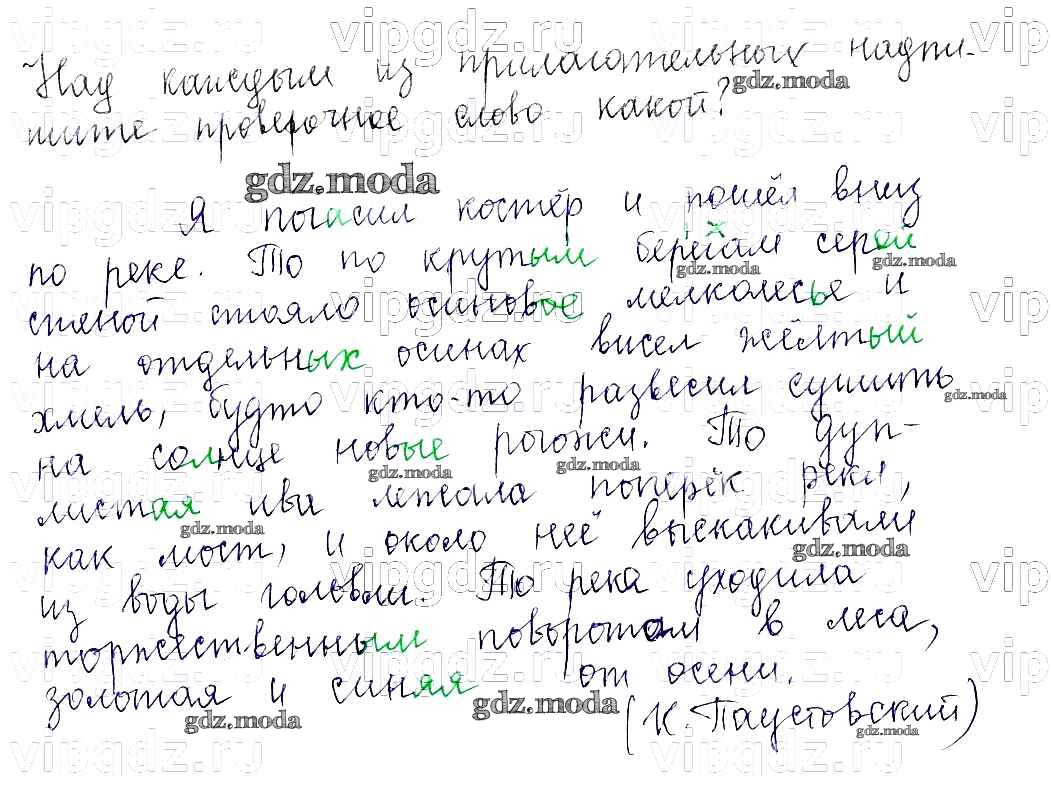 Над каждым из прилагательных надпи-
шите проверочное слово какой?
Я погасил костёр и пошёл вниз
по реке. То по крутым берегам серой
стеной стояло осиновое мелколесье и
на отдельных осинах висел жёлтый
хмель, будто кто-то развесил сушить
на солнце новые рогожи. То дуп-
листая ива лежала поперёк реки,
как мост, и около неё выскакивали
из воды головли. То река уходила
торжественным поворотом в леса,
золотая и синяя от осени.
(К. Паустовский)